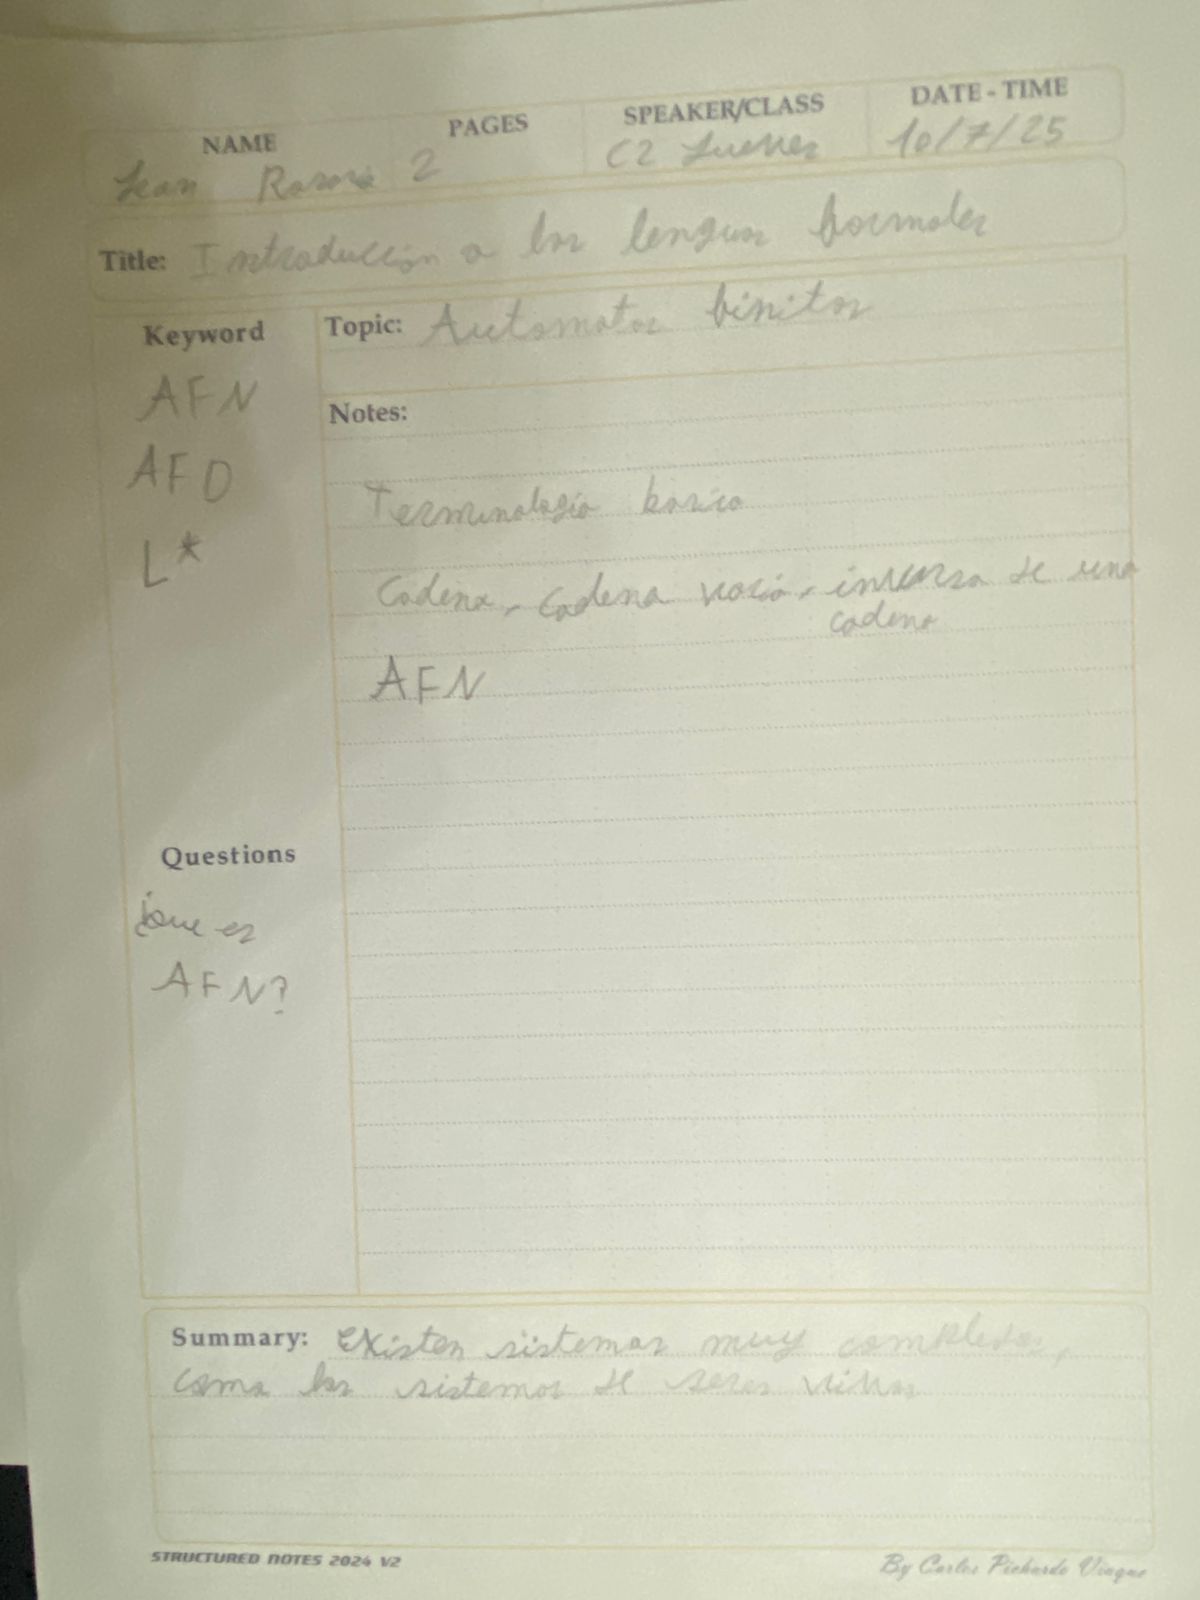 NAME PAGES SPEAKER/CLASS DATE - TIME
2 C2 Jueves 10/7/25
Title: Introducción a los lenguas formales
Keyword
AFN
AFD
L*
Topic: Automatas finitos
Notes:
Terminología básica
Cadena, cadena vacía, inversa de una
cadena
AFN
Questions
¿Que es
AFN?
Summary: Existen sistemas muy complejos,
como los sistemas de seres vivos
STRUCTURED NOTES 2024 V2
By Carlos Pichardo Viuque